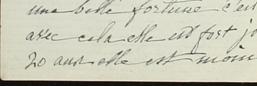 une belle fortune c'est
avec cela elle est fort jo
20 ans elle est moin